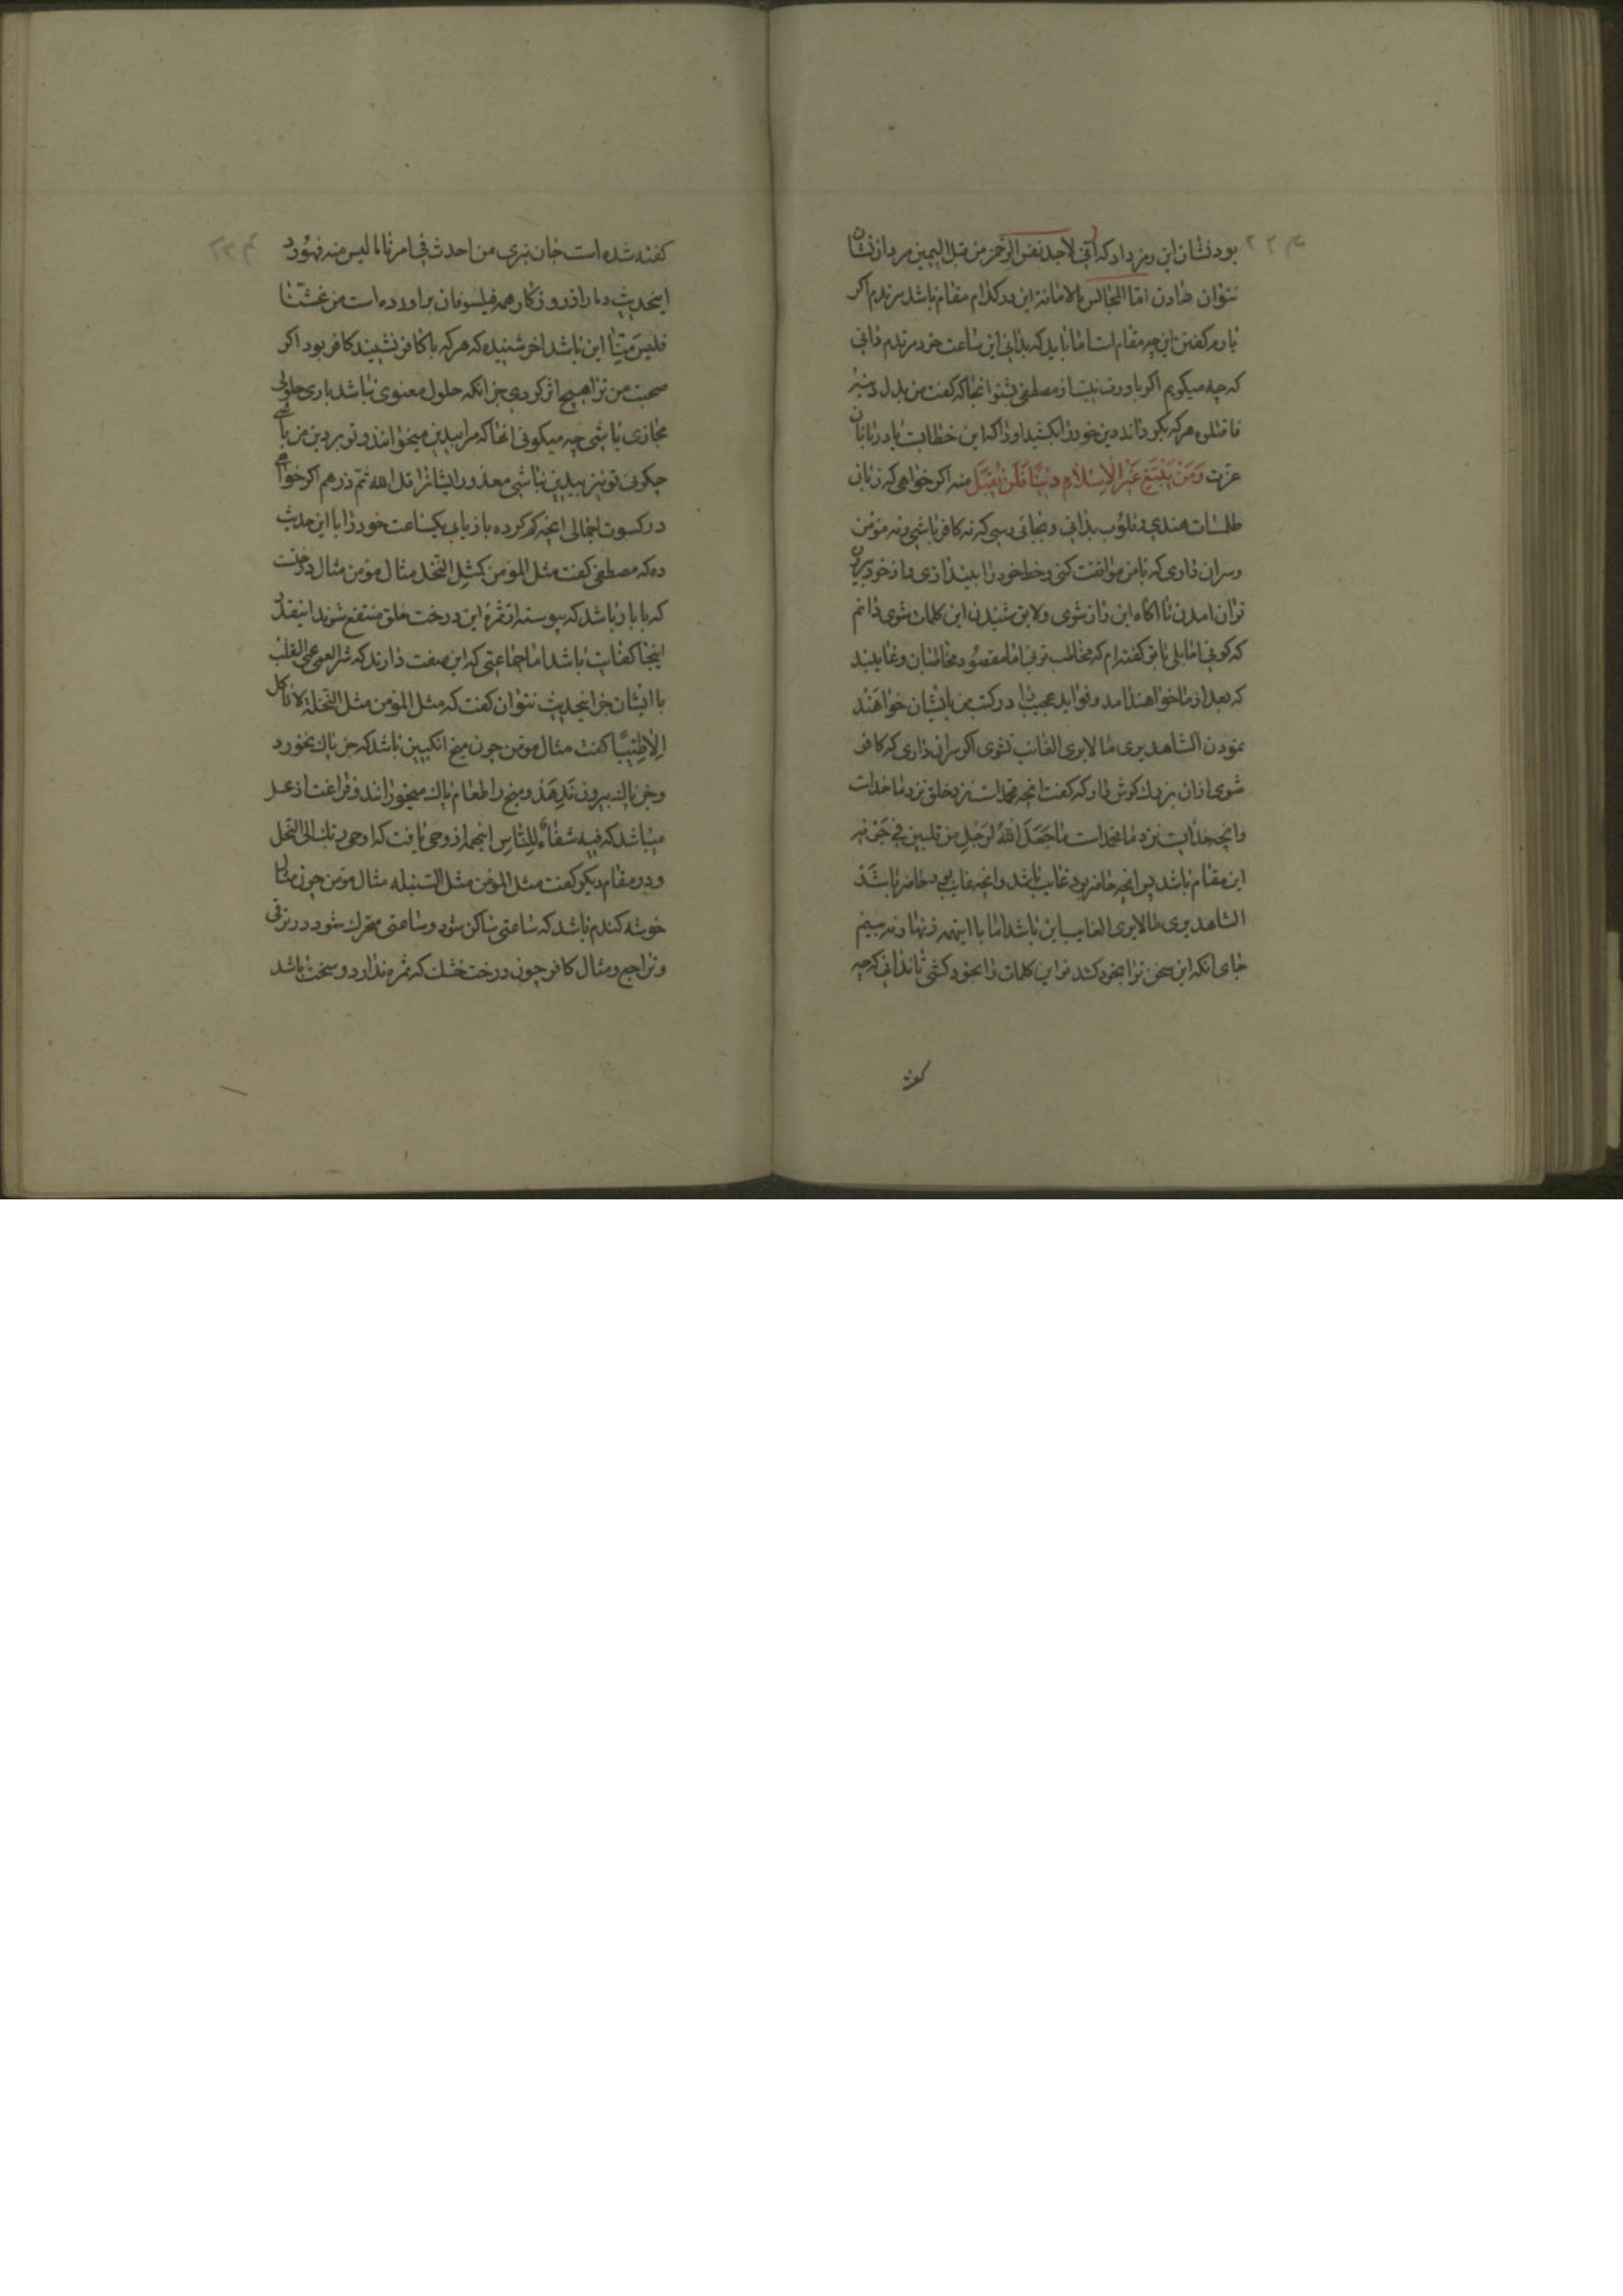 بود نشان این رمز داد که انی لاجد نفس الرحمن من قبل الیمین مرد از نشان
نتوان دادن اما المجالس بالامانة این در کدام مقام باشد مرتدم اکر
یارم کفتن این چه مقام است اما باید که بدانی این ساعت خود مرتدم دانی
که چه میکویم اکر باورت نیست از مصطفی بشنو انجا که کفت من بدل دینه
فاقتلوه هرکه بکرداند دین خود را بکشید او را که این خطابت یاد
عزت وَمَنْ يَبْتَغِ غَيْرَ الْإِسْلَامِ دِينًا فَلَنْ يُقْبَلَ منه اکر خواهی که زبانی
طلسمات هندی قلوب بدانی و بجائی رسی که نه کافر باشی و نه مؤمن
سر ان داری که با من موافقت کنی و خط خود را بیندازی و از خود بیرون
توان امدن تا اکاه این راز شوی و لایق شنیدن این کلمات شوی دانم
که کوئی اما بلی با تو کفته ام که مخاطب توئی اما مقصود مخاطبان و غایبند
که بعد از ما خواهند امد و فواید عجیب را در کتب من بایشان خواهند
نمودن الشاهد یری ما لا یری الغائب نشوی اکر سر ان داری که کافر
شوی ازان بزرك کوش دار که کفت انچه محمد است نزد خلق نزد ما خداست
وانچه خدایست نزد ما محمد است ما جَعَلَ اللهُ لِرَجُلٍ مِن قلبین في جَوْفِه
این مقام باشد پس انچه حاضر بود غایب باشد وانچه غایب بود حاضر باشد
الشاهد یری مالا یری الغایب این باشد اما با اینهمه نه می بینم
جای انکه این سخن ترا بخود کشد تو این کلمات را بخود کشی تا ندانی که چه
کفته
کفته شده است جان نبری من احدث في امرنا ما لیس منه فهو رد
اینحدیث دمار از روزکار همه فیلسوفان براورده است من غشنا
فلیس منّا این باشد اخر شنیده که هرکه با کافر نشیند کافر بود اکر
صحبت من ترا هیچ اثر کردی جز انکه حلول معنوی نباشد باری حلولی
مجازی باشی چه میکوئی انها که مرا بیدین میخوانند و تو بر دین من باشی
چکوئی تو نیز بیدین نباشی معذور ایشانرا قل الله ثم ذرهم اکر خواهی
در کسوت اجمالی انچه کم کرده بازیابی یکساعت خود را با این حدیث
ده که مصطفی کفت مثل المومن کمثل النخل مثال مؤمن مثال درختست
که با بار باشد که پیوسته از ثمره این درخت خلق منتفع شوند اینقدر
اینجا کفایت باشد اما جماعتی که این صفت دارند که شر العمی عمی القلب
با ایشان جز اینحدیث نتوان کفت که مثل المؤمن مثل النخلة لا تاکل
الّا طیّبًا کفت مثال مؤمن چون منج انکبین باشد که جز پاك نخورد
وجز پاك بیرون ندهد و منج را طعام پاك میخورانند و فراغت از عسل
میباشد که فیه شفاءٌ لِلنّاسِ اینهمه از وحی یافت که اوحی ربك الی النحل
و در مقام دیکر کفت مثل المؤمن مثل السنبله مثال مؤمن چون مثال
خوشه کندم باشد که ساعتی ساکن شود و ساعتی متحرك شود در ترقی
و تراجع و مثال کافر چون درخت خشك که ثمره ندارد و سخت باشد